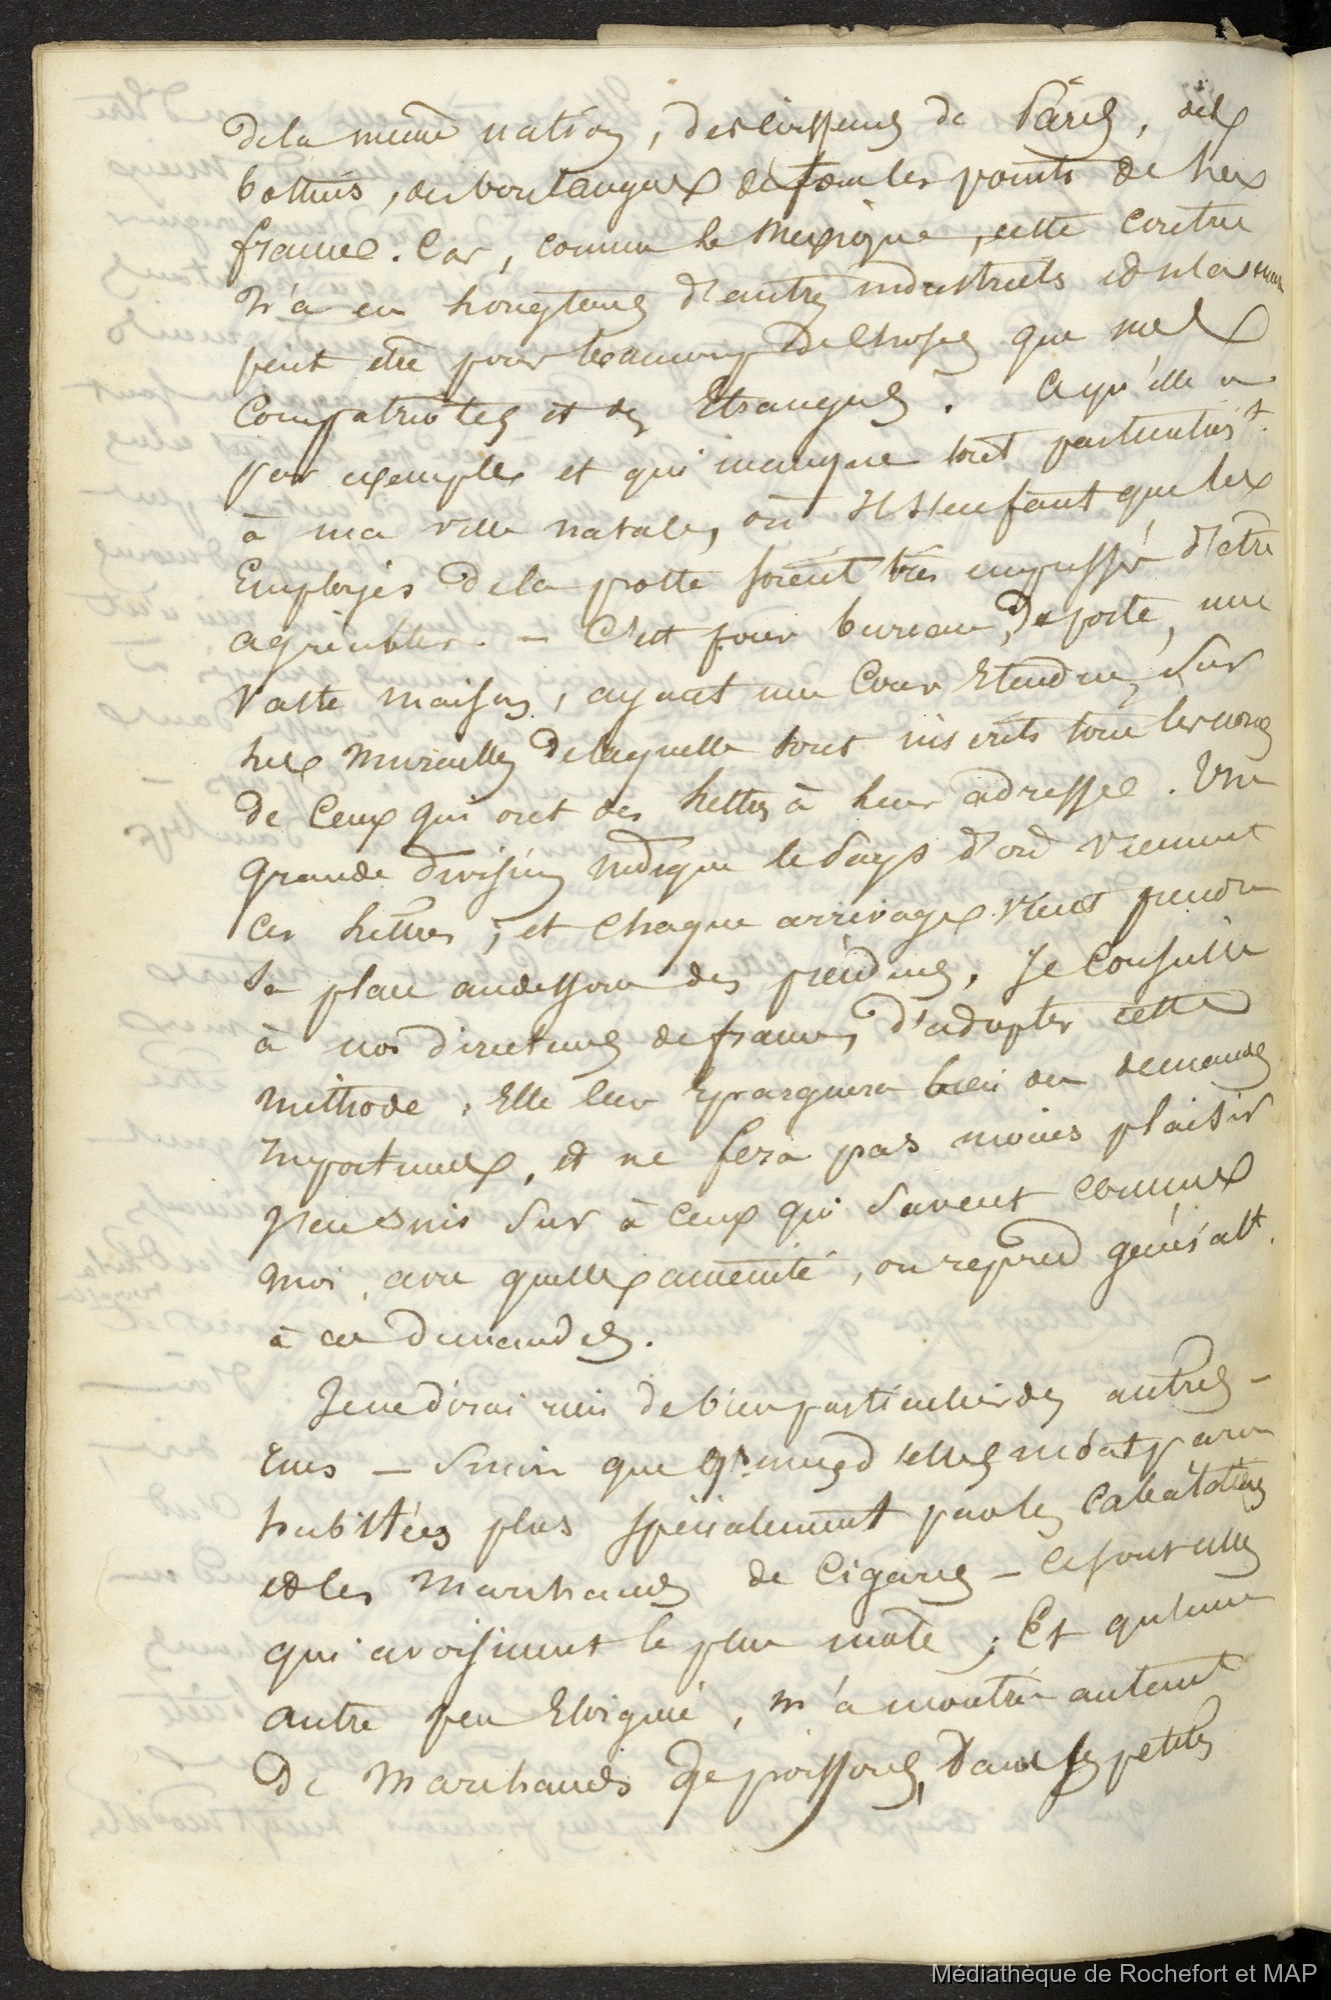 de la même nation, des coiffeurs de Paris, des
bottiers, des boulangers de tous les points de la
france. Car, comme le Mexique, cette contrée
n'a eu longtems d'autres industriels et n'a
peut être pour beaucoup de choses que mes
Compatriotes et des Etrangers. Ce qu'elle a
par exemple et qui manque tout particulièrt.
à ma ville natale, où il s'en faut que les
Employés de la poste soient très empressés d'etre
agréables. — C'est pour bureau de poste, une
vaste maison, ayant une Cour Etendue, sur
les murailles de laquelle sont inscrits tous les noms
de Ceux qui ont des lettres à leur adresse. Une
grande division indique le Pays d'où viennent
Ces lettres, et chaque arrivage vient prendre
sa place au dessous des précédens. Je Conseille
à nos directeurs de france, d'adopter cette
méthode. Elle leur Epargnera bien des demandes
Importunes, et ne fera pas moins plaisir
j'en suis sur à ceux qui savent comme
moi, avec quelle aménité, on repond généralt.
à ces demandes.
Je ne dirai rien de bien particulier des autres
rues — Sinon que quelques unes d'elles m'ont paru
habitées plus spécialement par les
et les Marchands de Cigares — Ce sont celles
qui avoisinent le plus ; Et qu'une
autre peu Eloignée, m'a montré autant
De Marchands de poissons, dans les petites
Médiathèque de Rochefort et MAP